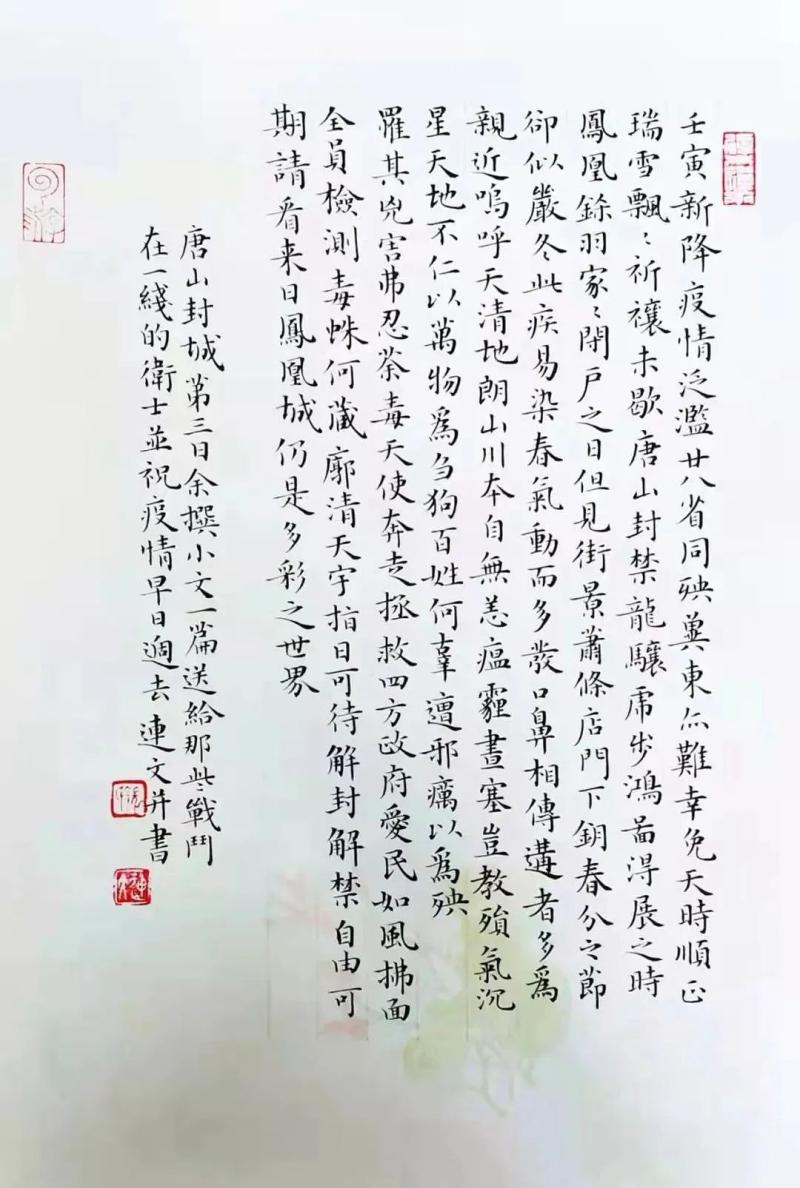 壬寅新降疫情泛濫廿八省同殃冀東亦難幸免天時順正
瑞雪飄〻祈禳未歇唐山封禁龍驤虎步鴻啚得展之時
鳳凰鎩羽家〻閉戶之日但見街景蕭條店門下鑰春分之節
卻似嚴冬此疾易染春氣動而多發口鼻相傳遘者多爲
親近嗚呼天清地朗山川本自無恙瘟霾晝塞豈教殞氣沉
星天地不仁以萬物爲芻狗百姓何辜遭邪癘以爲殃
罹其兇害弗忍荼毒天使奔走拯救四方政府愛民如風拂面
全員檢測毒蛛何藏廓清天宇指日可待解封解禁自由可
期請看来日鳳凰城仍是多彩之世界
唐山封城第三日余撰小文一篇送給那些戰鬥
在一綫的衛士並祝疫情早日過去連文并書